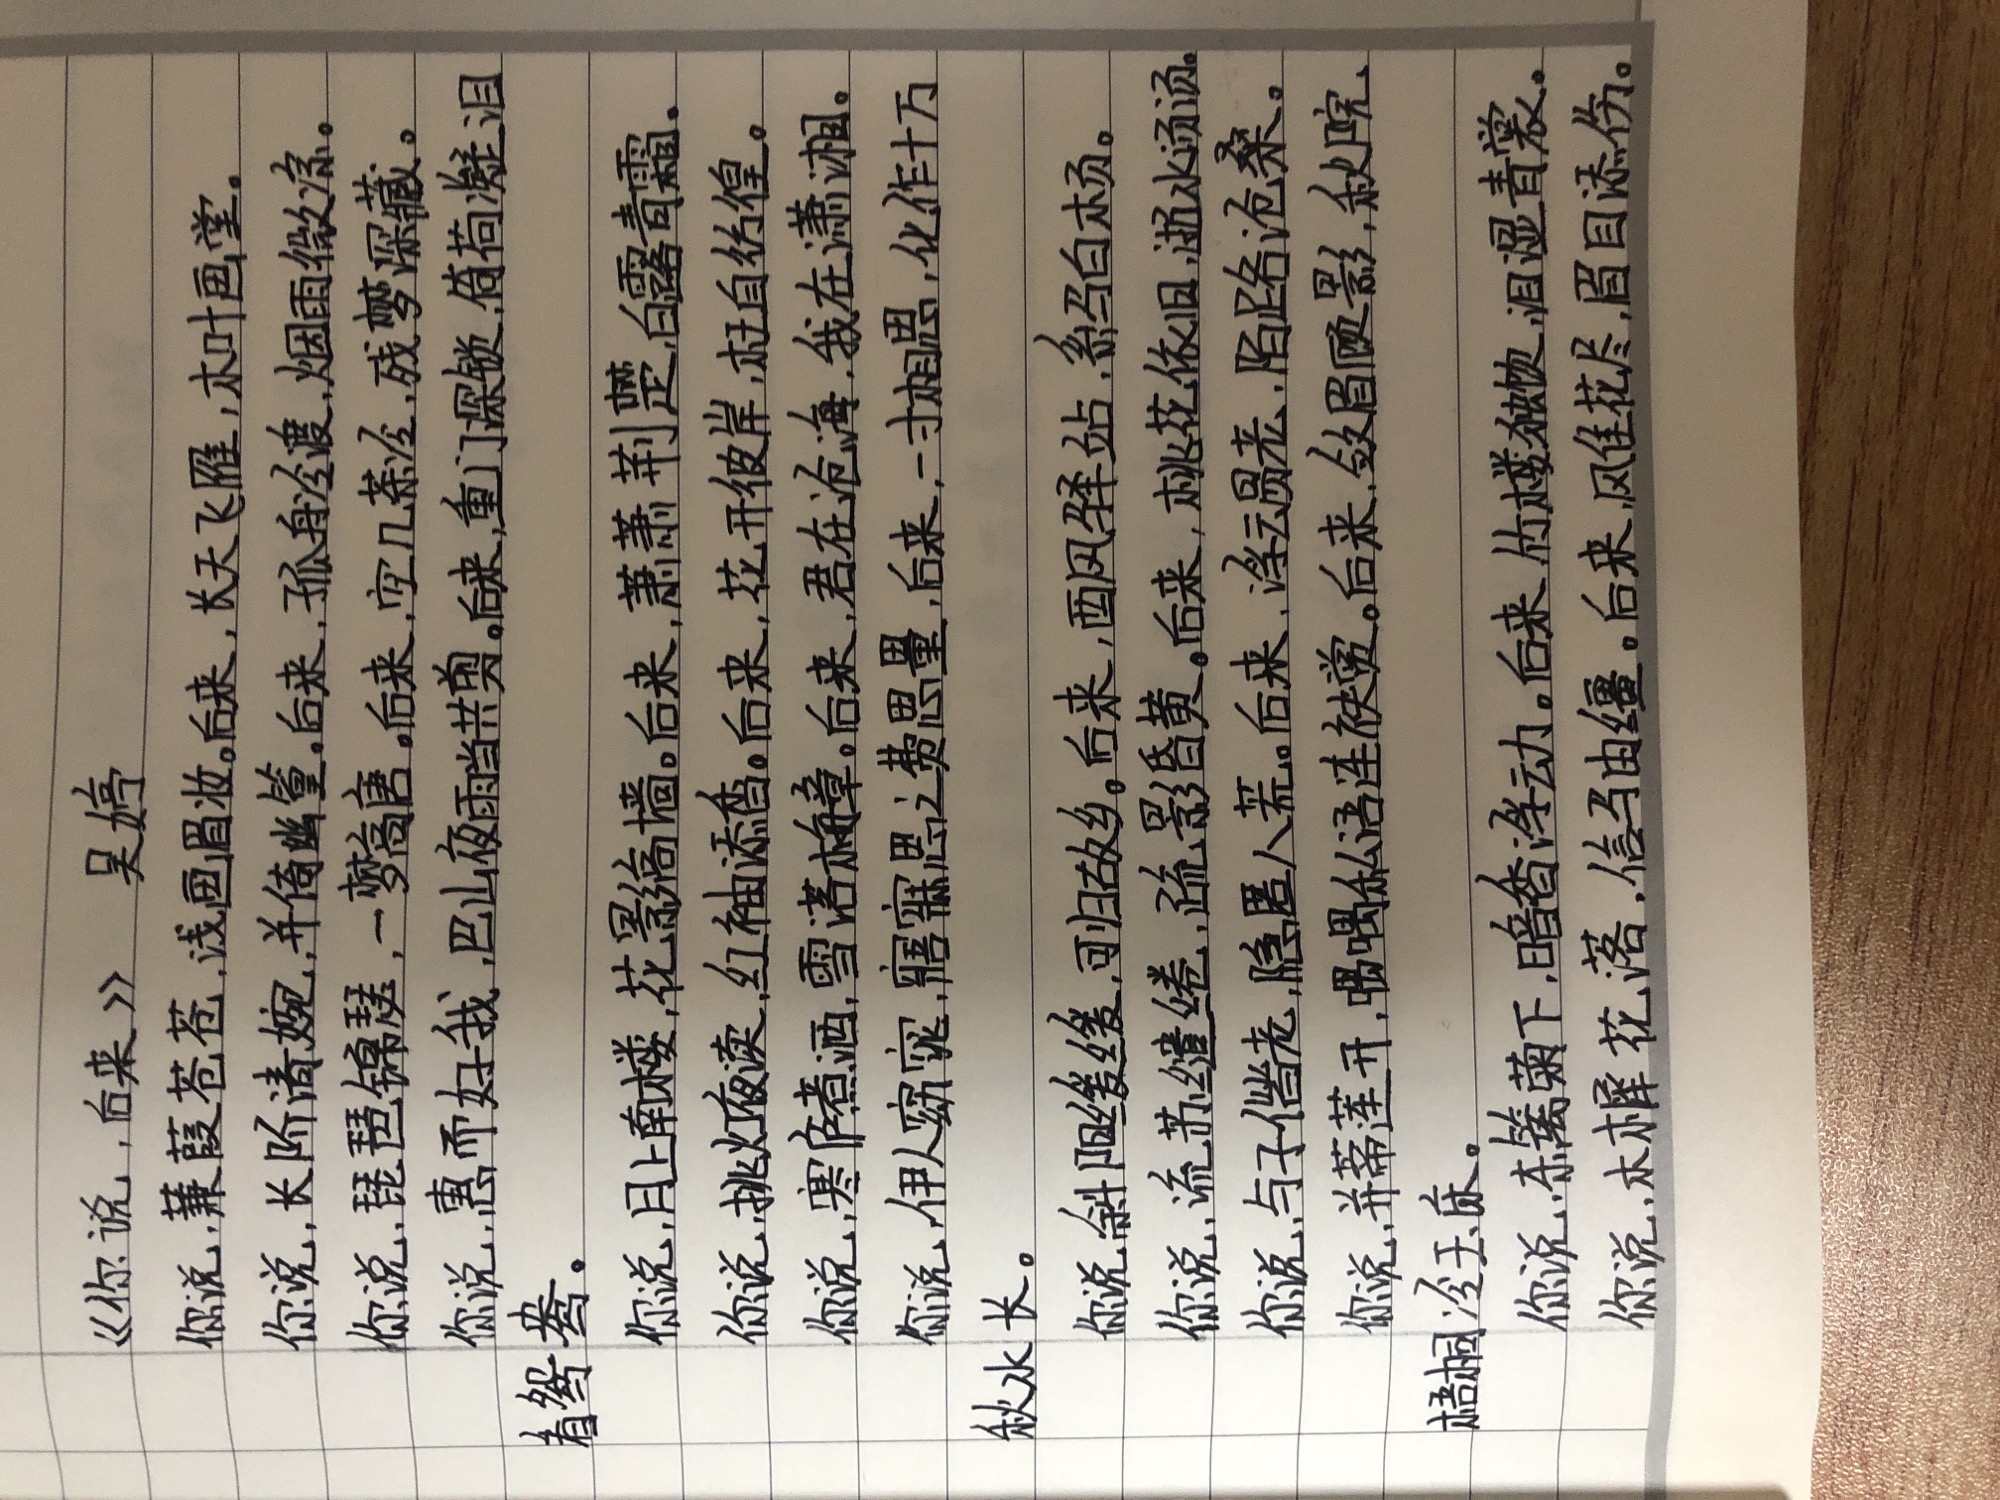 《你说，后来》 吴嫎
你说，蒹葭苍苍，浅画眉妆。后来，长天飞雁，木叶画堂。
你说，长阶清婉，并倚幽篁。后来，孤舟冷渡，烟雨微凉。
你说，琵琶锦瑟，一梦高唐。后来，空几茶冷，残梦深藏。
你说，惠而好我，巴山夜雨当共剪。后来，重门深锁，倚荷凝泪
着鸳鸯。
你说，月上南楼，花影缟墙。后来，萧萧荆楚，白露青霜。
你说，挑灯夜读，红袖添香。后来，花开彼岸，枉自彷徨。
你说，寒府煮酒，雪落梅章。后来，君在沧海，我在潇湘。
你说，伊人窈窕，寤寐思之费思量，后来，一寸相思，化作十万
秋水长。
你说，斜阳缓缓，可归故乡。后来，西风驿站，系马白杨。
你说，流苏缱绻，疏影昏黄。后来，桃花依旧，逝水汤汤。
你说，与子偕老，隐匿人荒。后来，浮云易老，陌路沧桑。
你说，并蒂莲开，喁喁私语连袂赏。后来，敛眉顾影，秋院
梧桐冷玉床。
你说，东篱菊下，暗香浮动。后来，竹楼独物，泪湿青裳。
你说，木樨花落，信马由缰。后来，风住花尽，眉目添伤。